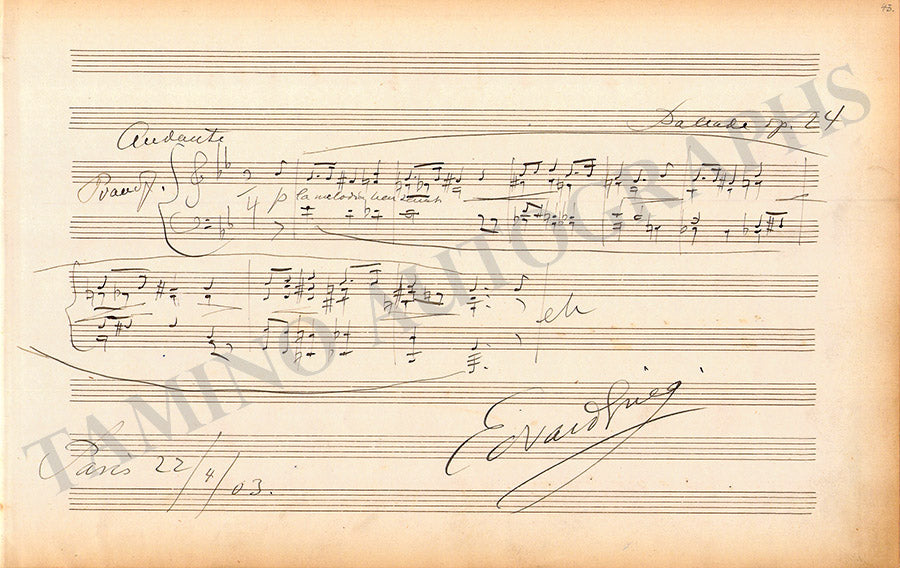 43.
Ballade op. 24
Andante
Piano
p la melodia ben tenuta
etc
Edvard Grieg
Paris 22/4/03.
TAMINO AUTOGRAPHS